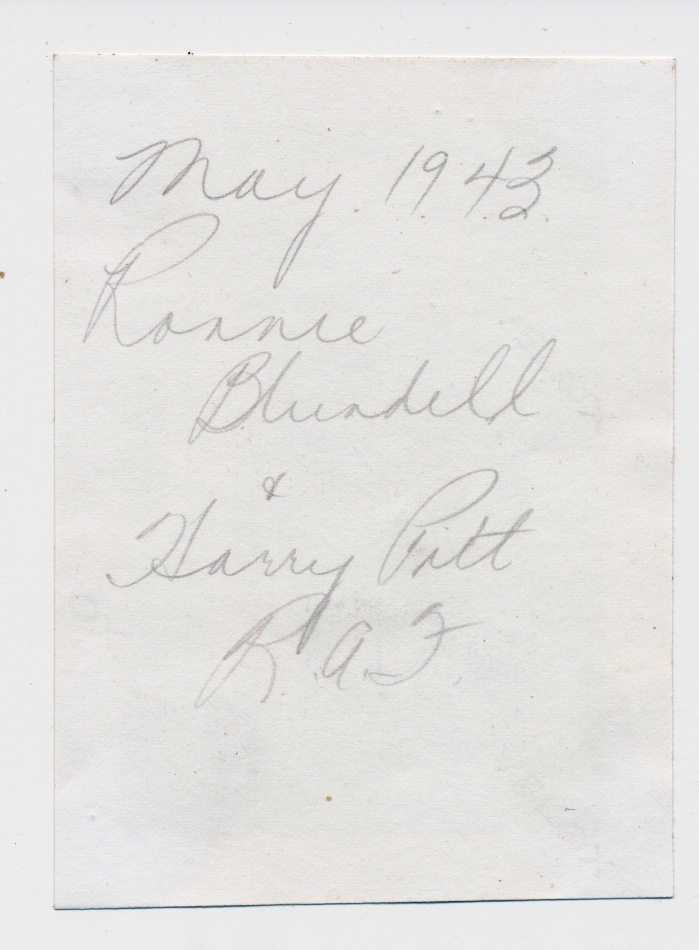 May 1943
Ronnie
Blundell
&
Harry Pitt
R.A.F.